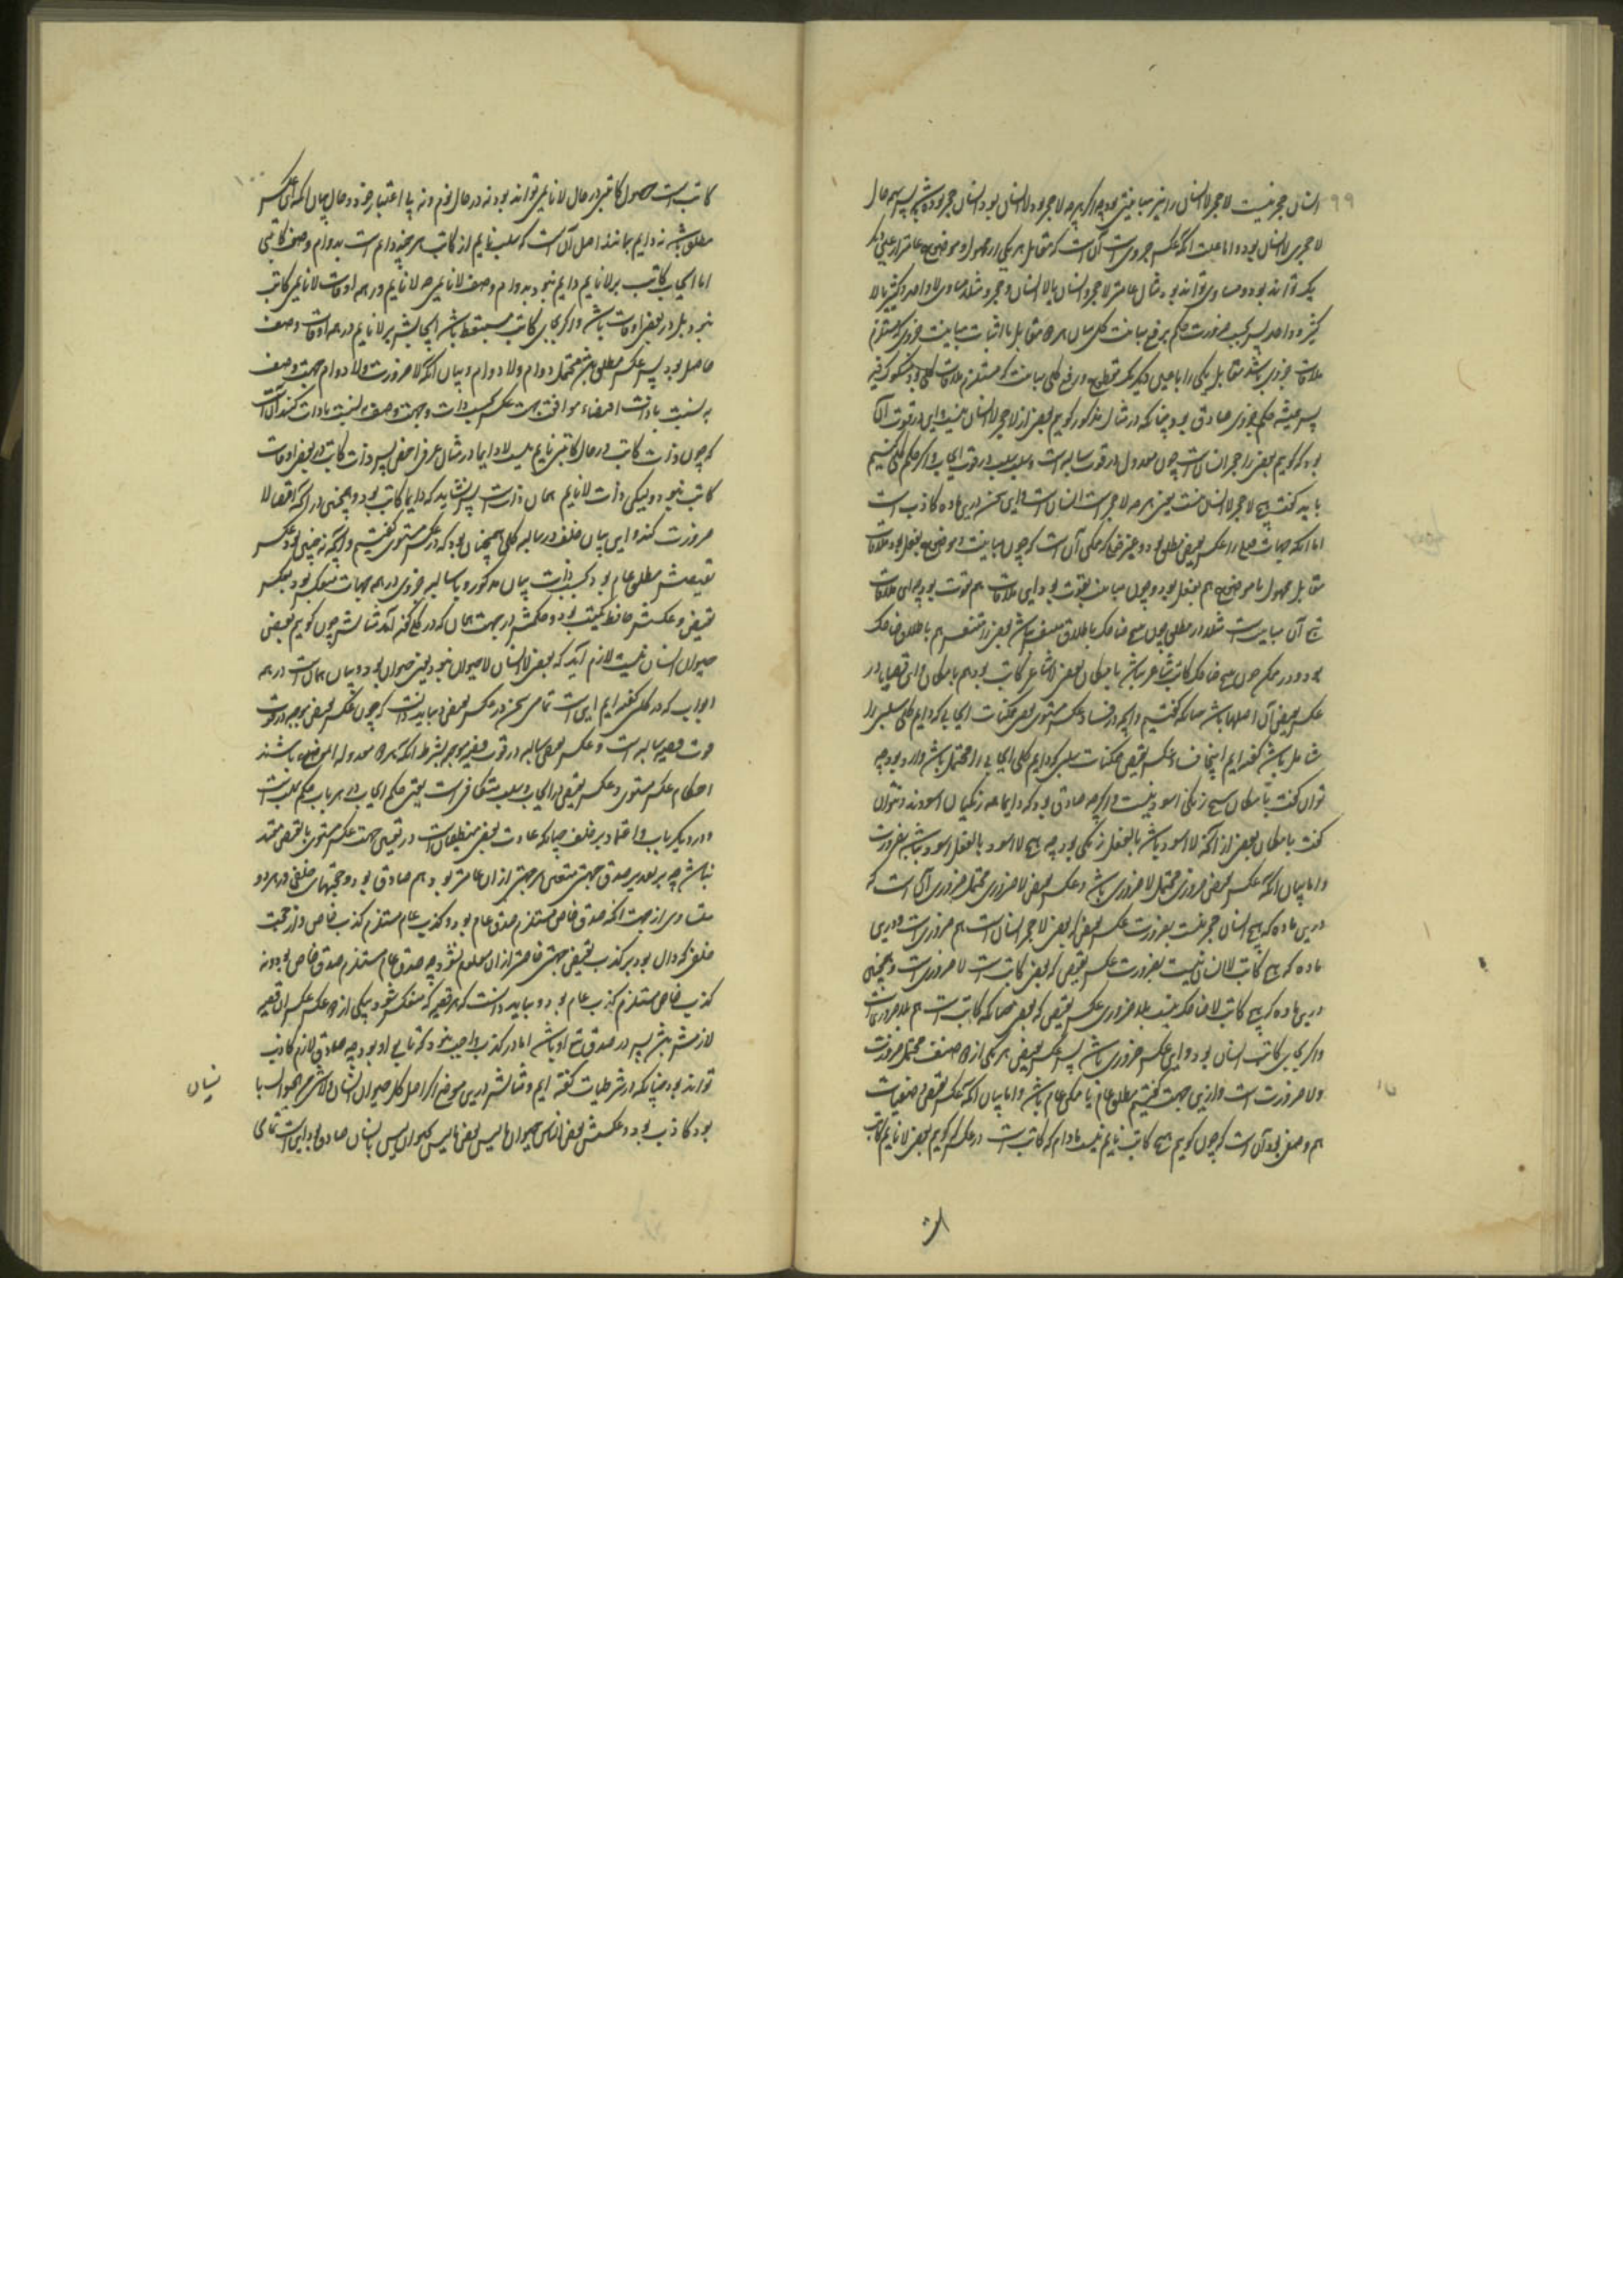 ۹۹
انسان حجر نیست لا حجر لا انسان را نیز مباینتی بود چه اگر هرچه لا حجر بود لا انسان بود انسان حجر بوده باشد پس همه حال
لا حجری لا انسان بود و اما علت آنکه عکس جزوی است آن است که مقابل هر یکی از محمول و موضوع عامتر از عین دیگر
یک تواند بود و مساوی تواند بود مثال عامتر لا حجر و انسان یا لا انسان و حجر و مثال مساوی لا واحد و کثیر یا لا
کثیر و واحد پس بحسب صورت حکم برفع مباینت کلی میان هر دو مقابل یا اثبات مباینت جزوی که مستلزم
ملاقات جزوی باشد مقابل یکی را با عین دیگر یک قطعی بود و رفع کلی مباینت که مستلزم ملاقات کلی بود مشکوک فیه
پس همیشه حکم جزوی صادق بود چنانکه در مثال مذکور گوییم بعضی از لا حجر لا انسان نیست و این در قوت آن
بود که گوییم بعضی لا حجر انسان است چون معدول در قوت سالبه است و سلب سلب در قوت ایجاب و اگر حکم کلی کنیم
باید گفت هیچ لا حجر لا انسان نیست یعنی هرچه لا حجر است انسان است و این سخن درین ماده کاذب است
اما آنکه جهات فعلی را عکس نقیض مطلق بود و غیر فعلی را ممکن آن است که چون مباینت و موضوع بفعل بود ملاقات
مقابل محمول با موضوع هم بفعل بود و چون مباینت بقوت بود این ملاقات هم بقوت بود چه این ملاقات
تابع آن مباینت است مثلا در مطلق چون هیچ ضاحک باطلاق متنفس نباشد بعضی لا متنفس هم باطلاق ضاحک
بود و در ممکن چون هیچ ضاحک کاتب شاعر نباشد بامکان بعضی لا شاعر کاتب بود هم بامکان و این قضایا در
عکس نقیض آن اصلها باشد چنانکه گفتیم و آنچه در فساد عکس مستوی بعضی ممکنات ایجابی که دایم کلی سلبی را
شامل باشد گفته ایم اینجا فساد عکس نقیض ممکنات سلبی که دایم کلی ایجابی را محتمل باشد وارد بود چه
توان گفت بامکان هیچ زنگی اسود نیست و اگرچه صادق بود که دایما همه زنگیان اسودند و نتوان
گفت بامکان بعضی از آنکه لا اسود باشد بالفعل زنگی بود چه هیچ لا اسود بالفعل اسود نباشد بضرورت
و اما بیان آنکه عکس نقیض ضروری محتمل لا ضروری باشد و عکس نقیض لا ضروری محتمل ضروری آن است که
درین ماده که هیچ انسان حجر نیست بضرورت عکس نقیض که بعضی لا حجر انسان است هم ضروری است و درین
ماده که هیچ کاتب لا انسان نیست بضرورت عکس نقیض که بعضی انسان کاتب است لا ضروری است و همچنین
درین ماده که هیچ کاتب لا ضاحک نیست بلا ضروری عکس نقیض که بعضی ضاحک کاتب است هم بلا ضروری است
و اگر بجای کاتب انسان بود این عکس ضروری باشد پس عکس نقیض هر یکی ازین دو صنف محتمل ضرورت
و لا ضرورت است و ازین جهت گفتیم مطلق عام یا ممکن عام باشد و اما بیان آنکه عکس نقیض وصفیات
هم وصفی بود آن است که چون گوییم هیچ کاتب نایم نیست مادام که کاتب است در عکس گوییم بعضی لا نایم کاتب
۱۰۰
کاتب است حصول کاتبی در حال لا نایمی تواند بود نه در حال نوم و نه بی اعتبار هر دو حال بیان آنکه این عکس
مطلق باشد نه دایم بمانند اصل آن است که سلب نایم از کاتب هر چند دایم است بدوام وصف کاتبی
اما ایجاب کاتب بر لا نایم دایم نبود بدوام وصف لا نایمی چه لا نایم در همه اوقات لا نایمی کاتب
نبود بل در بعضی اوقات باشد و اگر بجای کاتب مستیقظ باشد ایجابش بر لا نایم در همه اوقات وصف
حاصل بود پس عکس مطلق باشد محتمل دوام و لا دوام و بیان آنکه لا ضرورت و لا دوام جهت وصف
به نسبت با ذات اقتضاء موافقت جهت عکس بحسب ذات و جهت وصف به نسبت با ذات کنند آن است
که چون ذات کاتب در حال کاتبی نایم نیست لا دایما در مثال عرفی اخص پس ذات کاتب در بعضی اوقات
کاتب نبود و لیکن ذات لا نایم همان ذات است پس نشاید که دایما کاتب بود و همچنین در آنکه اقتضا لا
ضرورت کند و این بیان خلف در سالبه کلی همچنان بود که در عکس مستوی گفتیم و آنچه نه چنین بود عکس
نقیضش مطلق عام بود بحسب ذات بیان مذکور و با سالبه جزوی در همه جهات منعکس بود بعکس
نقیض و عکسش حافظ کیفیت بود و حکمش در جهت همان که در کلی گفته آمد مثالش چون گوییم بعضی
حیوان انسان نیست لازم آید که بعضی لا انسان لا حیوان نبود یعنی حیوان بود و بیان همان است در همه
ابواب که در کلی گفته ایم این است تمامی سخن در عکس نقیض و بباید دانست که چون عکس نقیض موجبه در قوت
قوت قضیه سالبه است و عکس نقیض سالبه در قوت قضیه موجبه بشرط آنکه هر دو معدوله الموضوع باشند
احکام عکس مستوی و عکس نقیض در ایجاب و سلب متکافی است یعنی حکم ایجاب در هر باب حکم سلب است
در دیگر باب و اعتماد بر خلف چنانکه عادت بعضی منطقیان است در تعیین جهت عکس مستوی یا نقیض معتمد
نباشد چه بر تقدیر صدق جهتی متعین هر جهتی از آن عامتر بود هم صادق بود و حجتهای خلفی در هر دو
متساوی از جهت آنکه صدق خاص مستلزم صدق عام بود و کذب عام مستلزم کذب خاص و از حجت
خلفی که دال بود بر کذب نقیض جهتی خاصتر از آن معلوم نشود چه صدق عام مستلزم صدق خاص نبود و نه
کذب خاص مستلزم کذب عام بود و بباید دانست که هر قضیه که منعکس شود بیکی ازین دو عکس عکس آن قضیه
لازمش باشد پس در صدق تابع او باشد اما در کذب واجب نبود که تابع او بود چه صادق لازم کاذب
تواند بود چنانکه در شرطیات گفته ایم و مثالش درین موضع اگر اصل کل حیوان انسان و لا شیء من الحیوان با
نسان
بود کاذب بود و عکسش بعض الناس حیوان یا لیس بعض ما لیس بحیوان لیس بانسان صادق بود این است تمامی